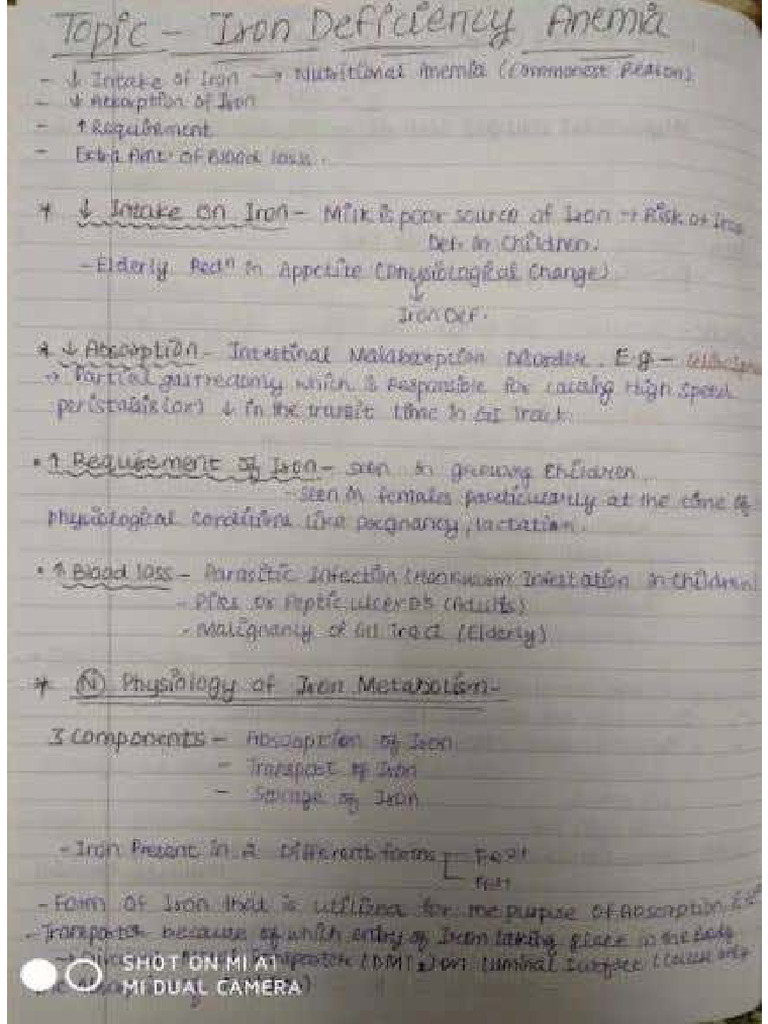 Topic - Iron Deficiency Anemia
- ↓ Intake of Iron → Nutritional Anemia (Commonest Reason)
- ↓ Absorption of Iron
- ↑ Requirement
- Extra Amt. of Blood loss.
* ↓ Intake on Iron - Milk is poor source of Iron → Risk of Iron
Def. in Children.
- Elderly Redⁿ in Appetite (Physiological Change)
↓
Iron Def.
* ↓ Absorption - Intestinal Malabsorption Disorder. E.g -
→ Partial gastrectomy which is Responsible for causing High Speed
peristalsis (or) ↓ in the transit time in GI Tract.
• ↑ Requirement of Iron - seen in growing Children.
- seen in females particularly at the time of
physiological conditions like pregnancy, lactation.
• ↑ Blood loss - Parasitic Infection (Hookworm Infestation in Children)
- Piles or Peptic ulcer DS (Adults)
- Malignancy of GI Tract (Elderly)
* (N) Physiology of Iron Metabolism -
3 Components - Absorption of Iron
- Transport of Iron
- Storage of Iron
- Iron Present in 2 Different forms Fe2+
Fe3+
- Form of Iron that is utilized for the purpose of Absorption
- Transporter because of which entry of Iron taking place in the body
(DMT1) on luminal surface
SHOT ON MI A1
MI DUAL CAMERA